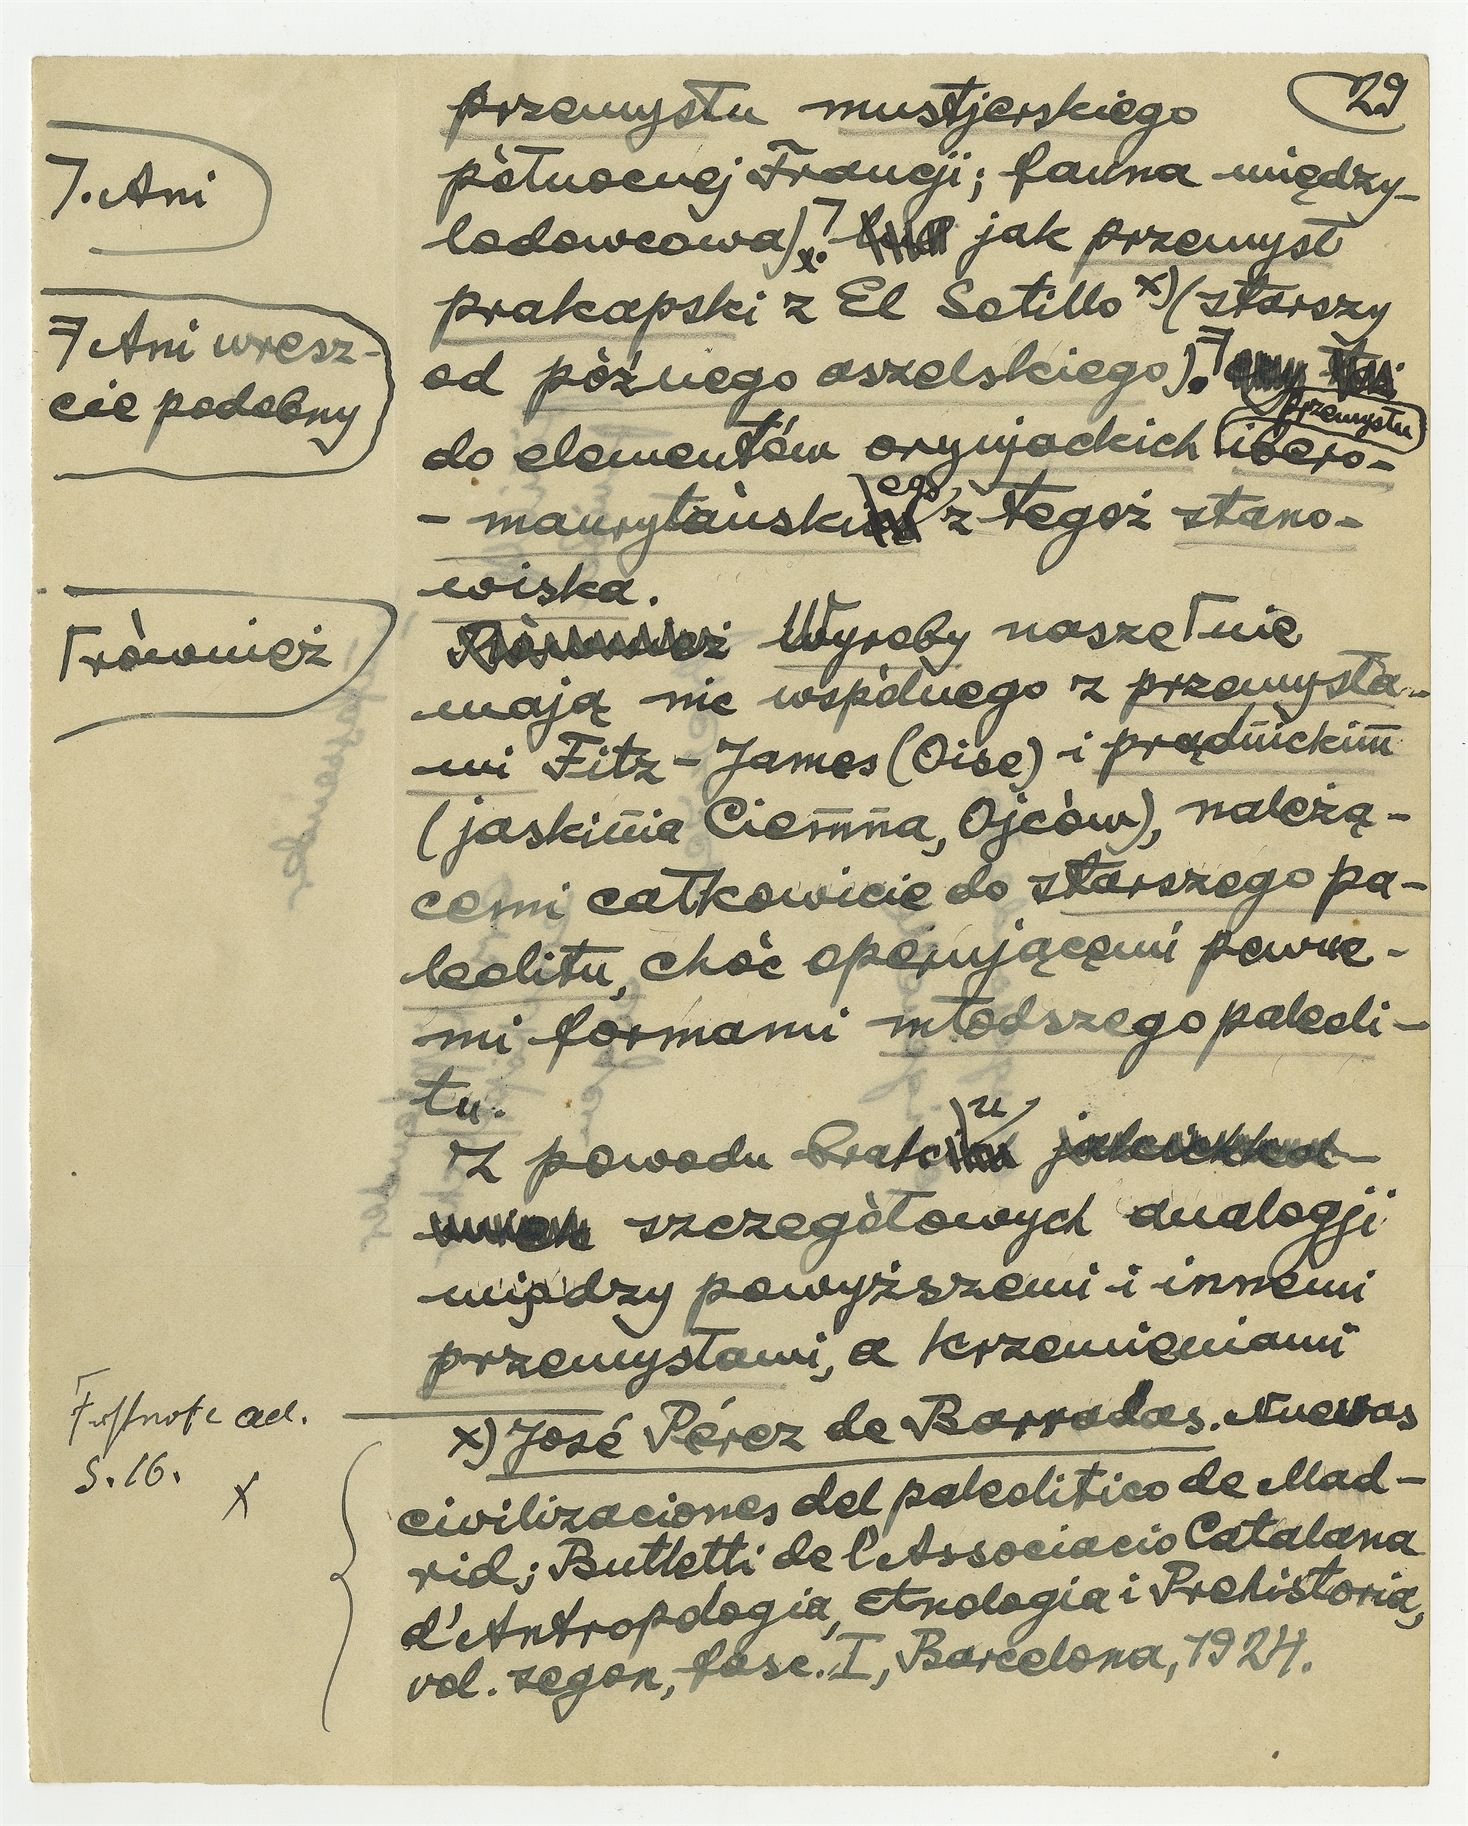 29
przemysłu mustjerskiego
północnej Francji; fauna między-
lodowcowa). jak przemysł
prakapski z El Sotillo x) (starszy
od późnego aszelskiego).
przemysłu
do elementów oryniackich ibero-
- maurytańskiego z tegoż stano-
wiska.
Również Wyroby nasze nie
mają nic wspólnego z przemysła-
mi Fitz-James (Oise) i prądnickim
(jaskinia Ciemna, Ojców), należą-
cemi całkowicie do starszego pa-
leolitu, choć operującemi pewne-
mi formami młodszego paleoli-
tu.
Z powodu braku
szczegółowych analogji
między powyższemi i innemi
przemysłami, a krzemieniami
x) José Pérez de Barradas. Nuevas
civilizaciones del paleolitico de Mad-
rid; Butlletti de l'Associacio Catalana
d'Antropologia, Etnologia i Prehistoria,
vol. segon, fasc. I, Barcelona, 1924.
7. Ani
7 Ani wresz-
cie podobny
Γ również
Fussnote ad.
S. 16. x